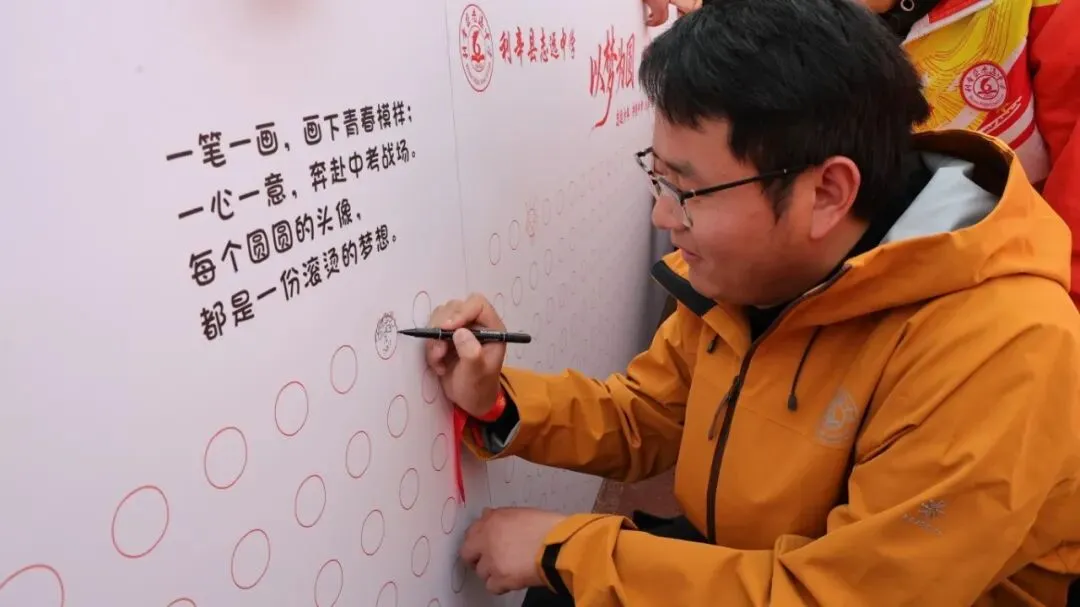 一笔一画，画下青春模样；
一心一意，奔赴中考战场。
每个圆圆的头像，
都是一份滚烫的梦想。
利辛县志远中学
以梦为圆